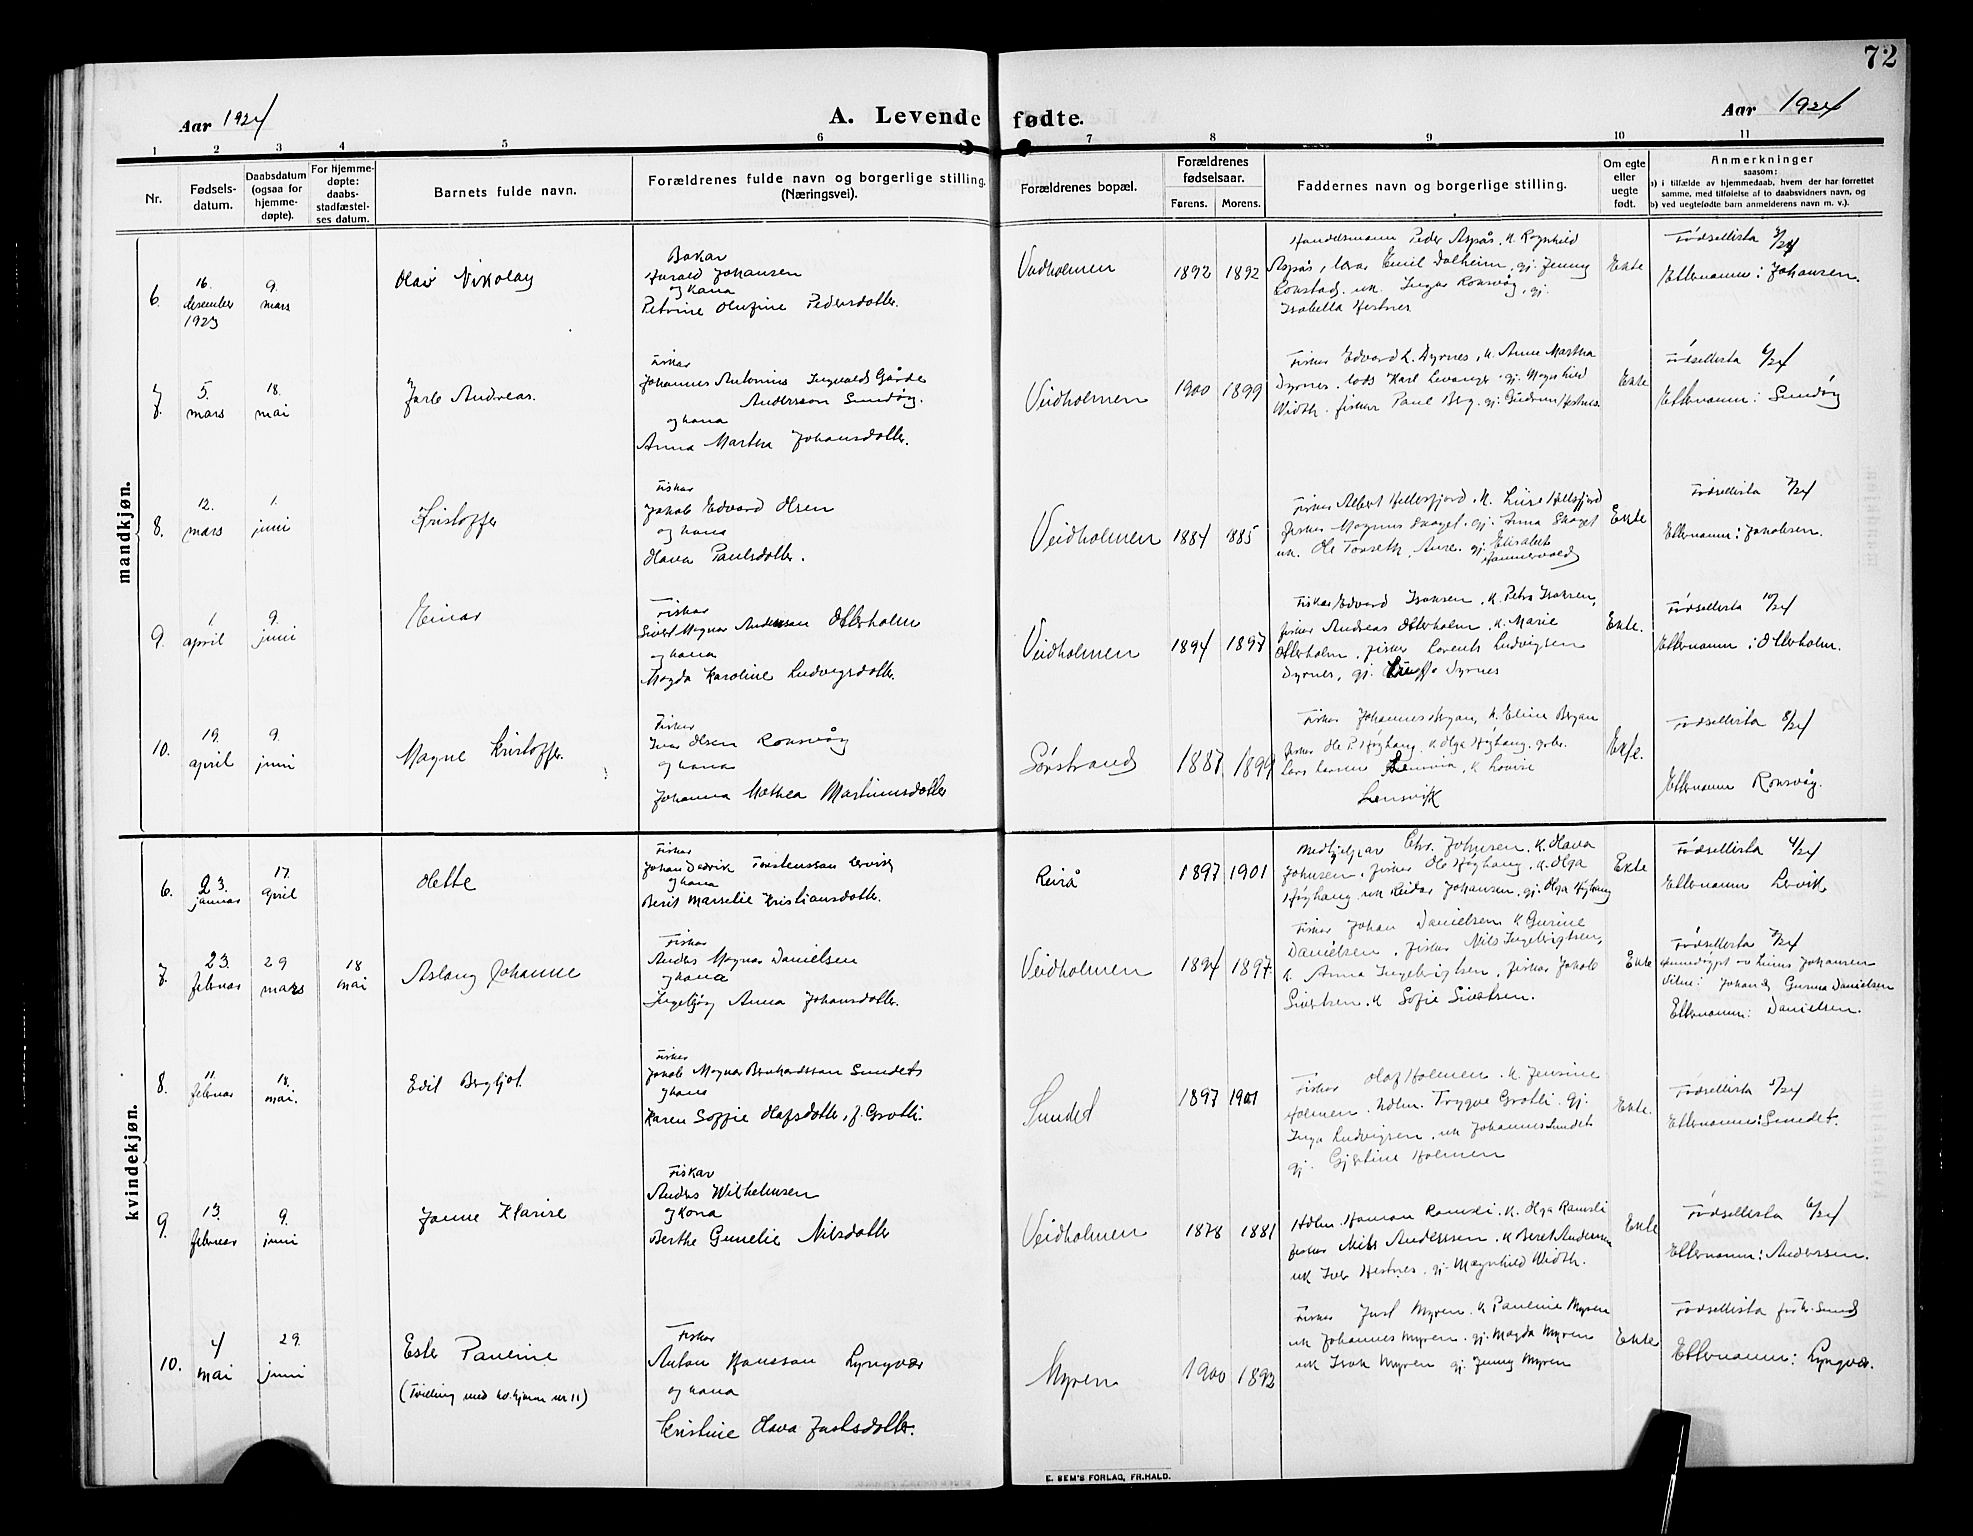 72
Aar 1924
A. Levende fødte.
Aar 1924
1 2 3 4 5 6 7 8 9 10 11
Nr.
Fødsels-
datum.
Daabsdatum
(ogsaa for
hjemme-
døpte).
For hjemme-
døpte:
daabs-
stadfæstel-
ses datum.
Barnets fulde navn.
Forældrenes fulde navn og borgerlige stilling.
(Næringsvei).
Forældrenes bopæl.
Forældrenes
fødselsaar.
Farens. Morens.
Faddernes navn og borgerlige stilling.
Om egte
eller
uegte
født.
Anmerkninger
saasom:
a) i tilfælde av hjemmedaab, hvem der har forrettet
samme, med tilføielse af to daabsvidners navn, og
b) ved uegtefødte barn anmelderens navn m. v.).
mandkjøn.
6.
16.
desember
1923
9.
mars
Olav Nikolay
Bakar
Harald Johansen
og kona
Petrine Olufine Pedersdotter.
Veidholmen
1892 1892
Handelsmann Peder Aspås, k. Ragnhild
Aspås, lærar Emil Dalheim, gj. Jenny
uk. Inga Ronsvåg, gj.
Isabella Hestnes
Ekte
Fødsellista 3/24
Etternamn: Johansen.
7.
5.
mars
18.
mai
Jarle Andreas.
Fiskar
Johannes Antonius Ingvald Gårde
Anderssen Sundøy.
og kona
Anna Martha Johansdotter.
Veidholmen
1900 1899
Fiskar Edvard L. Dyrnes, k. Anna Martha
Dyrnes. lods Karl Levanger. gj. Magnhild
Width. fiskar Paul Berg. gj. Gudrun Hestnes.
Ekte
Fødsellista 6/24
Etternamn: Sundøy
8.
12.
mars
1.
juni
Kristoffer
Fiskar
Jakob Edvard Olsen
og kona
Olava Paulsdotter.
Veidholmen
1884 1885
Fiskar Albert Hellesfjord, k. Lise Hellesfjord
fiskar Magnus Skaget. gj. Anna Skaget
uk. Ole Torseth, Aure. gj. Elisabet
Hammervold
Ekte
Fødsellista 7/24
Etternamn: Jakobsen.
9.
1
april
9.
juni
Einar
Fiskar
Sivert Magnus Anderssen Otterholm
og kona
Magda Karoline Ludvigsdotter.
Veidholmen
1894 1897
Fiskar Edvard Isaksen, k. Petra Isaksen,
fiskar Andreas Otterholm, k. Marie
Otterholm, fiskar Lorents Ludvigsen
Dyrnes, gj. Dyrnes
Ekte.
Fødsellista 10/24
Etternamn: Otterholm.
10.
19.
april
9.
juni
Magne Kristoffer.
Fiskar
Ivar Olsen Ronsvåg
og kona
Johanna Mathea Martinusdotter
Sørstrand
1887 1899
Fiskar Johannes Bergan, k. Eline Bergan
fiskar Ole P. Høghaug, k. Olga Høghaug, gbr.
Lars Larsen k. Lovise
Lensvik
Ekte.
Fødsellista 8/24
Etternamn Ronsvåg.
kvindekjøn.
6.
23.
januar
17.
april
Olette
Fiskar
Johan Fredrik Torstenssen Lervik
og kona
Berit Marselie Kristiansdotter.
Reirå
1897 1901
Chr. Johnsen, k. Olava
Johnsen, fiskar Ole Høghaug, k. Olga
Høghaug. uk Reidar Johansen, gj. Olga Høghaug
Ekte
Fødsellista 4/24
Etternamn Lervik.
7.
23.
februar
29
mars
18
mai
Aslaug Johanne
Fiskar
Anders Magnus Danielsen
og kona
Ingebjørg Anna Johansdotter.
Veidholmen
1894 1897.
Fiskar Johan Danielsen k Gurine
Danielsen, fiskar Nils Ingebrigtsen,
k. Anna Ingebrigtsen, fiskar Jakob
Sivertsen. k Sofie Sivertsen.
Ekte
Fødsellista 7/24
Heimedøypt av Linus Johansen
Vitne: Johan & Gurina Danielsen
Etternamn: Danielsen.
8.
11.
februar
18.
mai.
Edit Bergljot.
Fiskar
Jakob Magnus Bernhardssen Sundet
og kona
Karen Soffie Olafsdotter, f. Grotli.
Sundet
1897 1901
Fiskar Olaf Holmen k. Jensine
Holmen. hdlm. Trygve Grotli. gj.
Inga Ludvigsen. uk Johannes Sundet
gj. Gjertine Holmen
Ekte.
Fødsellista 5/24
Etternamn: Sundet.
9.
13.
februar
9.
juni
Janne Klarise
Fiskar
Anders Wilhelmsen
og kona
Berthe Gunelie Nilsdotter
Veidholmen
1878 1881
Hdlm. Haman Ramsli. k. Olga Ramsli
fiskar Nils Anderssen. k Beret Anderssen
uk Iver Hestnes. gj. Magnhild Width.
Ekte
Fødsellista 6/24
Etternamn: Anderssen.
10.
4
mai
29.
juni
Ester Pauline
(Tvilling med kv.kjønn nr 11)
Fiskar
Anton Hanssen Lyngvær
og kona
Kristine Olava Justsdotter.
Myren
1900 1892
Fiskar Just Myren. k Pauline Myren
uk Johannes Myren. gj. Magda Myren
uk Isak Myren gj. Jenny Myren
Ekte
Fødsellista
Etternamn: Lyngvær.
E. SEM'S FORLAG, FR.HALD.